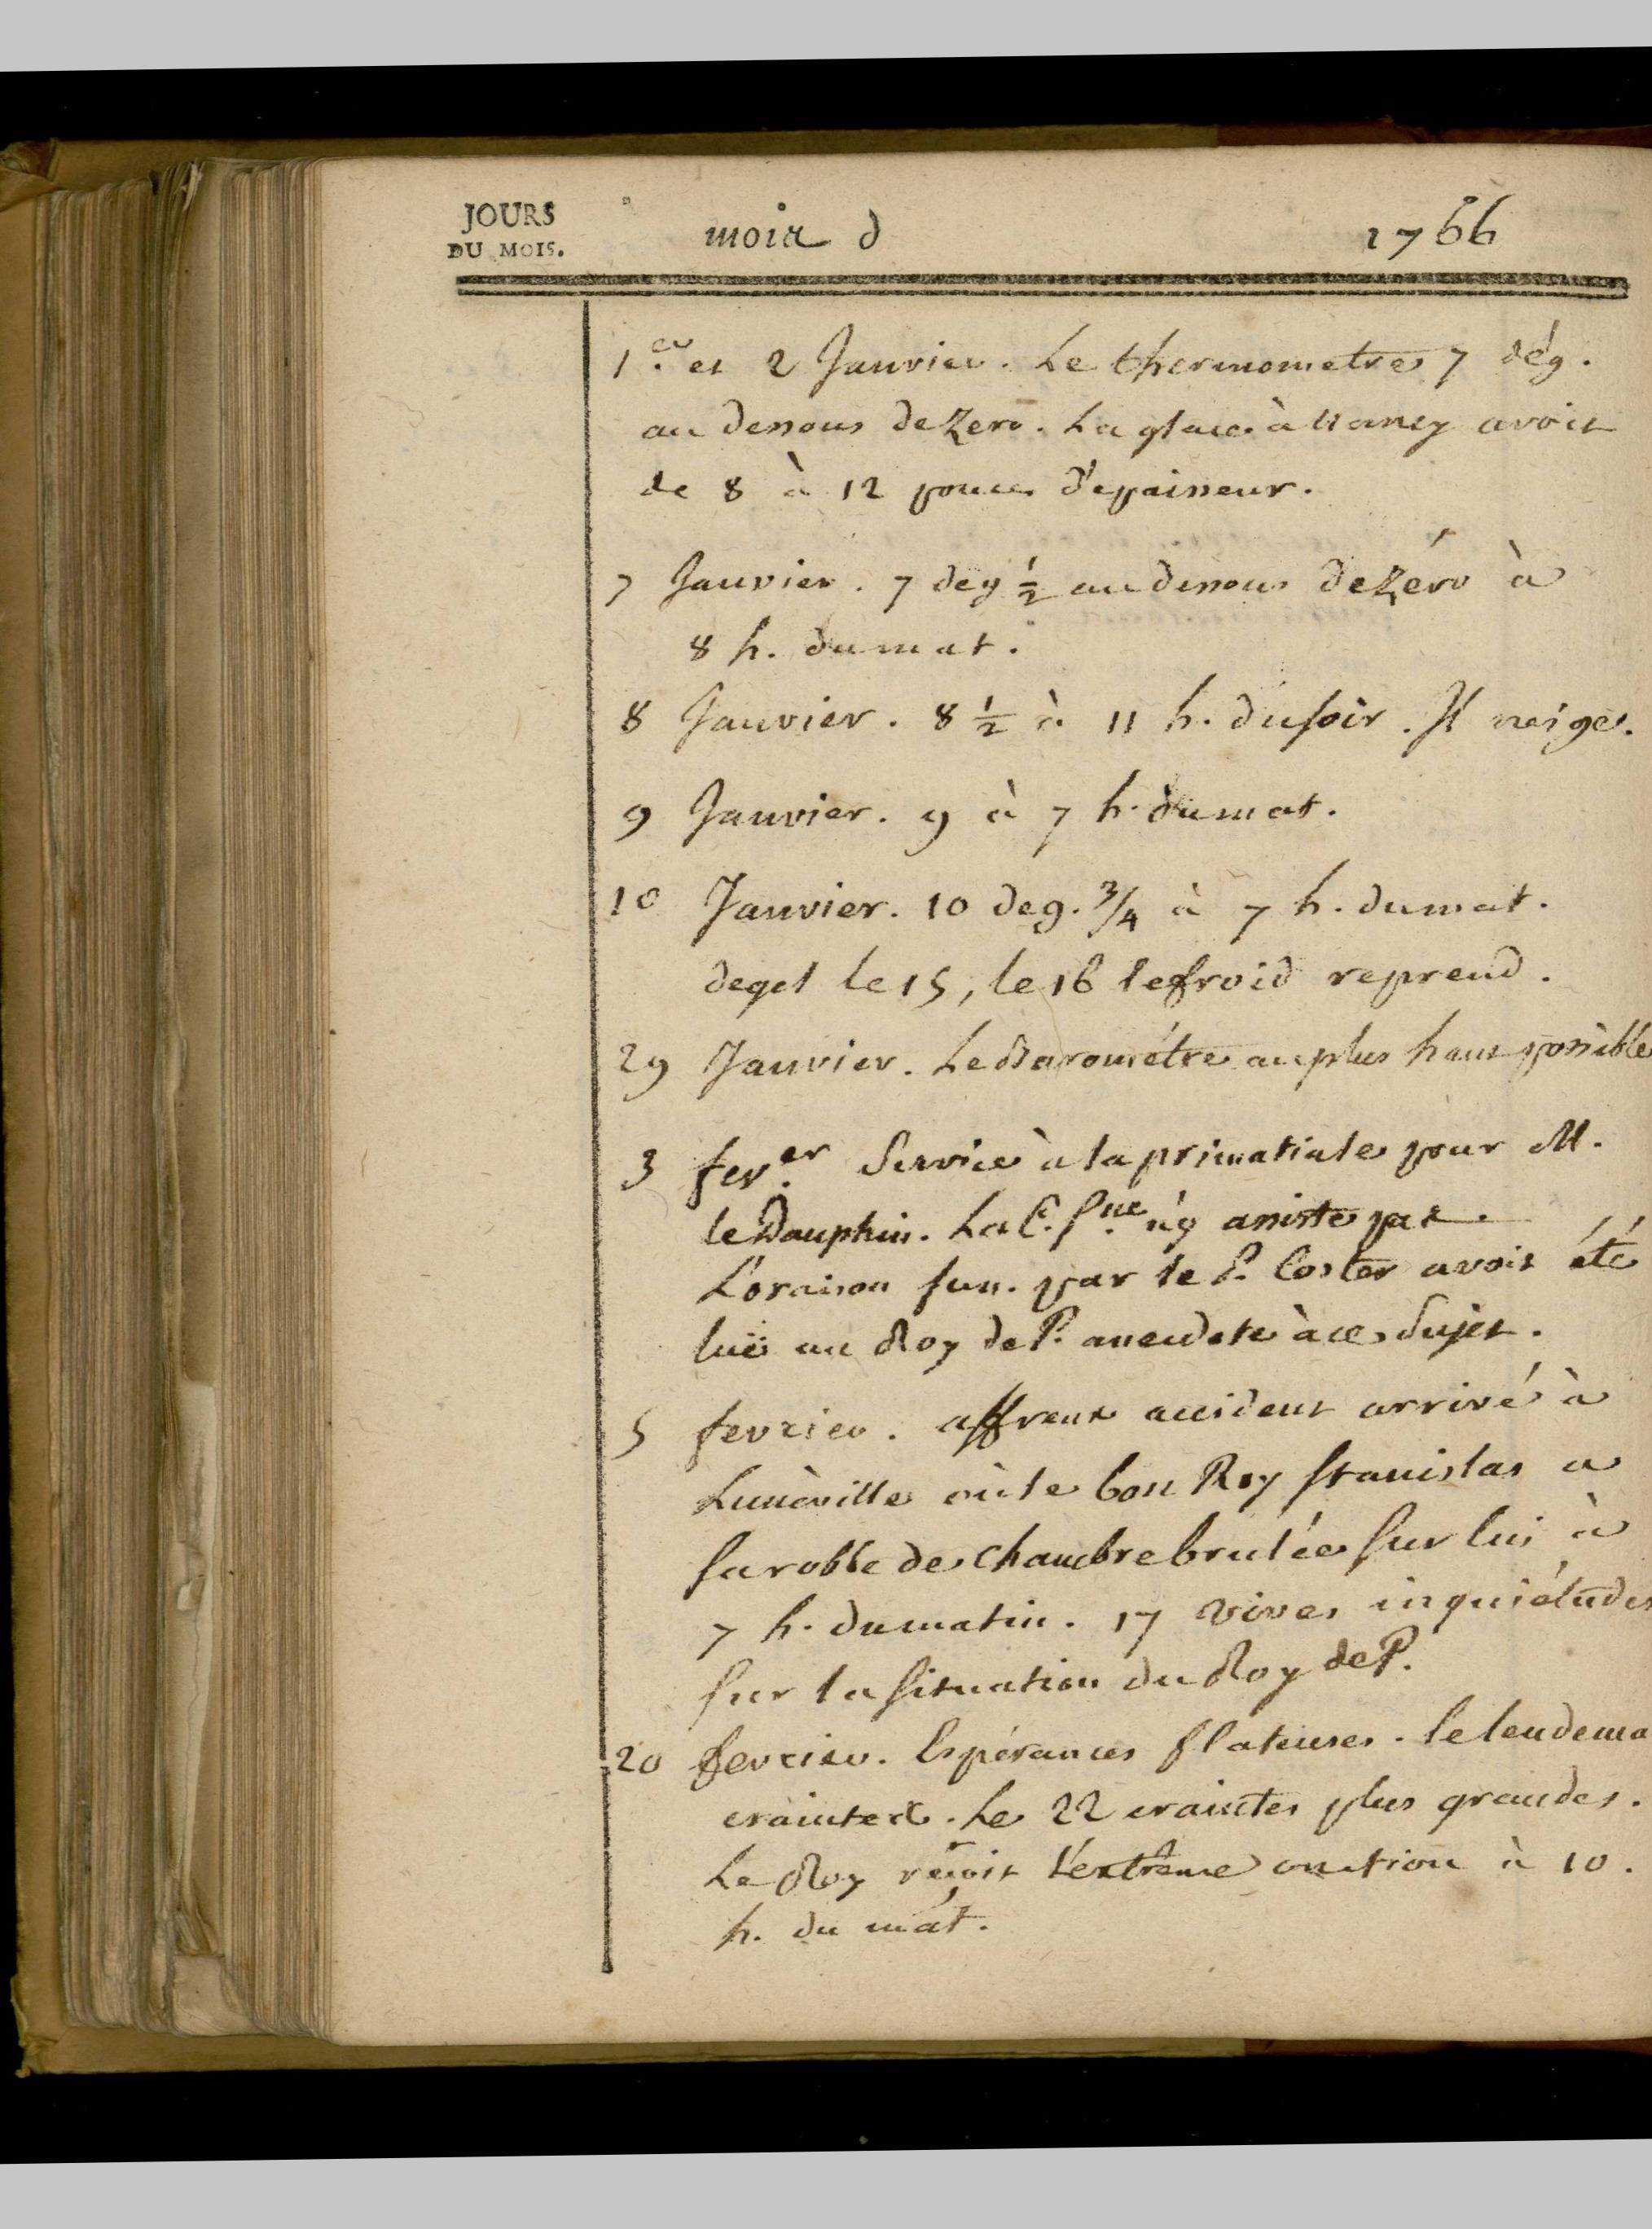 JOURS
DU MOIS.
mois d 1766
1.er et 2 Janvier. Le thermometre 7 dég.
au dessous de Zero. La glace à Nancy avoit
de 8 à 12 pouces d'epaisseur.
7 Janvier. 7 deg ½ au dessous de Zéro à
8 h. du mat.
8 Janvier. 8 ½ à 11 h. du soir. Il neige.
9 Janvier. 9 à 7 h. du mat.
10 Janvier. 10 deg. ¾ à 7 h. du mat.
degel le 15, le 16 le froid reprend.
29 Janvier. Le Barométre au plus haut possible
3 fev.er Service à la primatiale pour M.
le Dauphin. La C. S.ne n'y assiste pas.
L'oraison fun. par le P. Coster avoit été
luë au Roy de P. anecdote à ce Sujet.
5 fevrier. affreux accident arrivé à
Lunéville où le bon Roy Stanislas a
sa robbe de chambre brulée sur lui à
7 h. du matin. 17 vives inquiétudes
sur la situation du Roy de P.
20 fevrier. Espérances flateuses. le lendema
craintes. Le 22 craintes plus grandes.
Le Roy reçoit l'extrême onction à 10.
h. du mat.